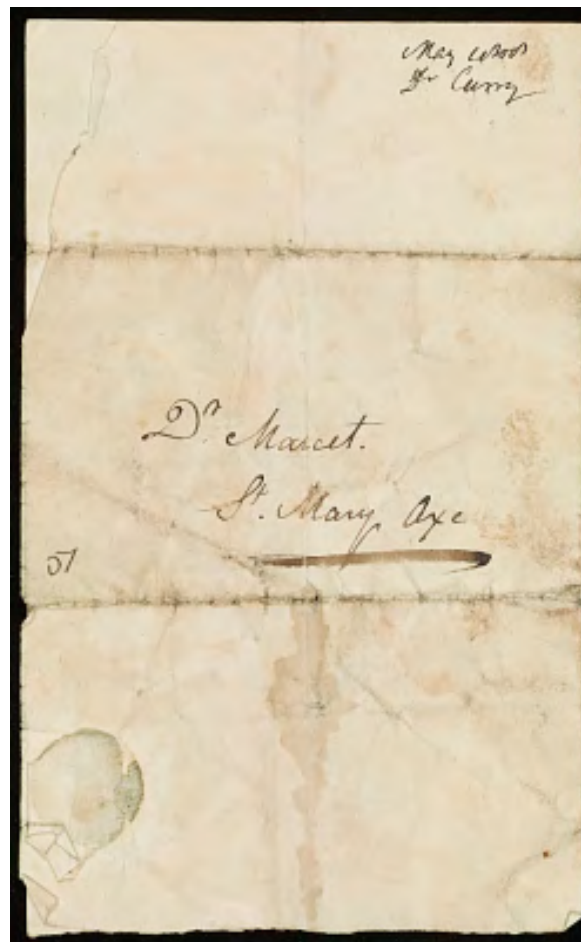 May
Dr Curry
Dr. Marcet.
St. Mary Axe